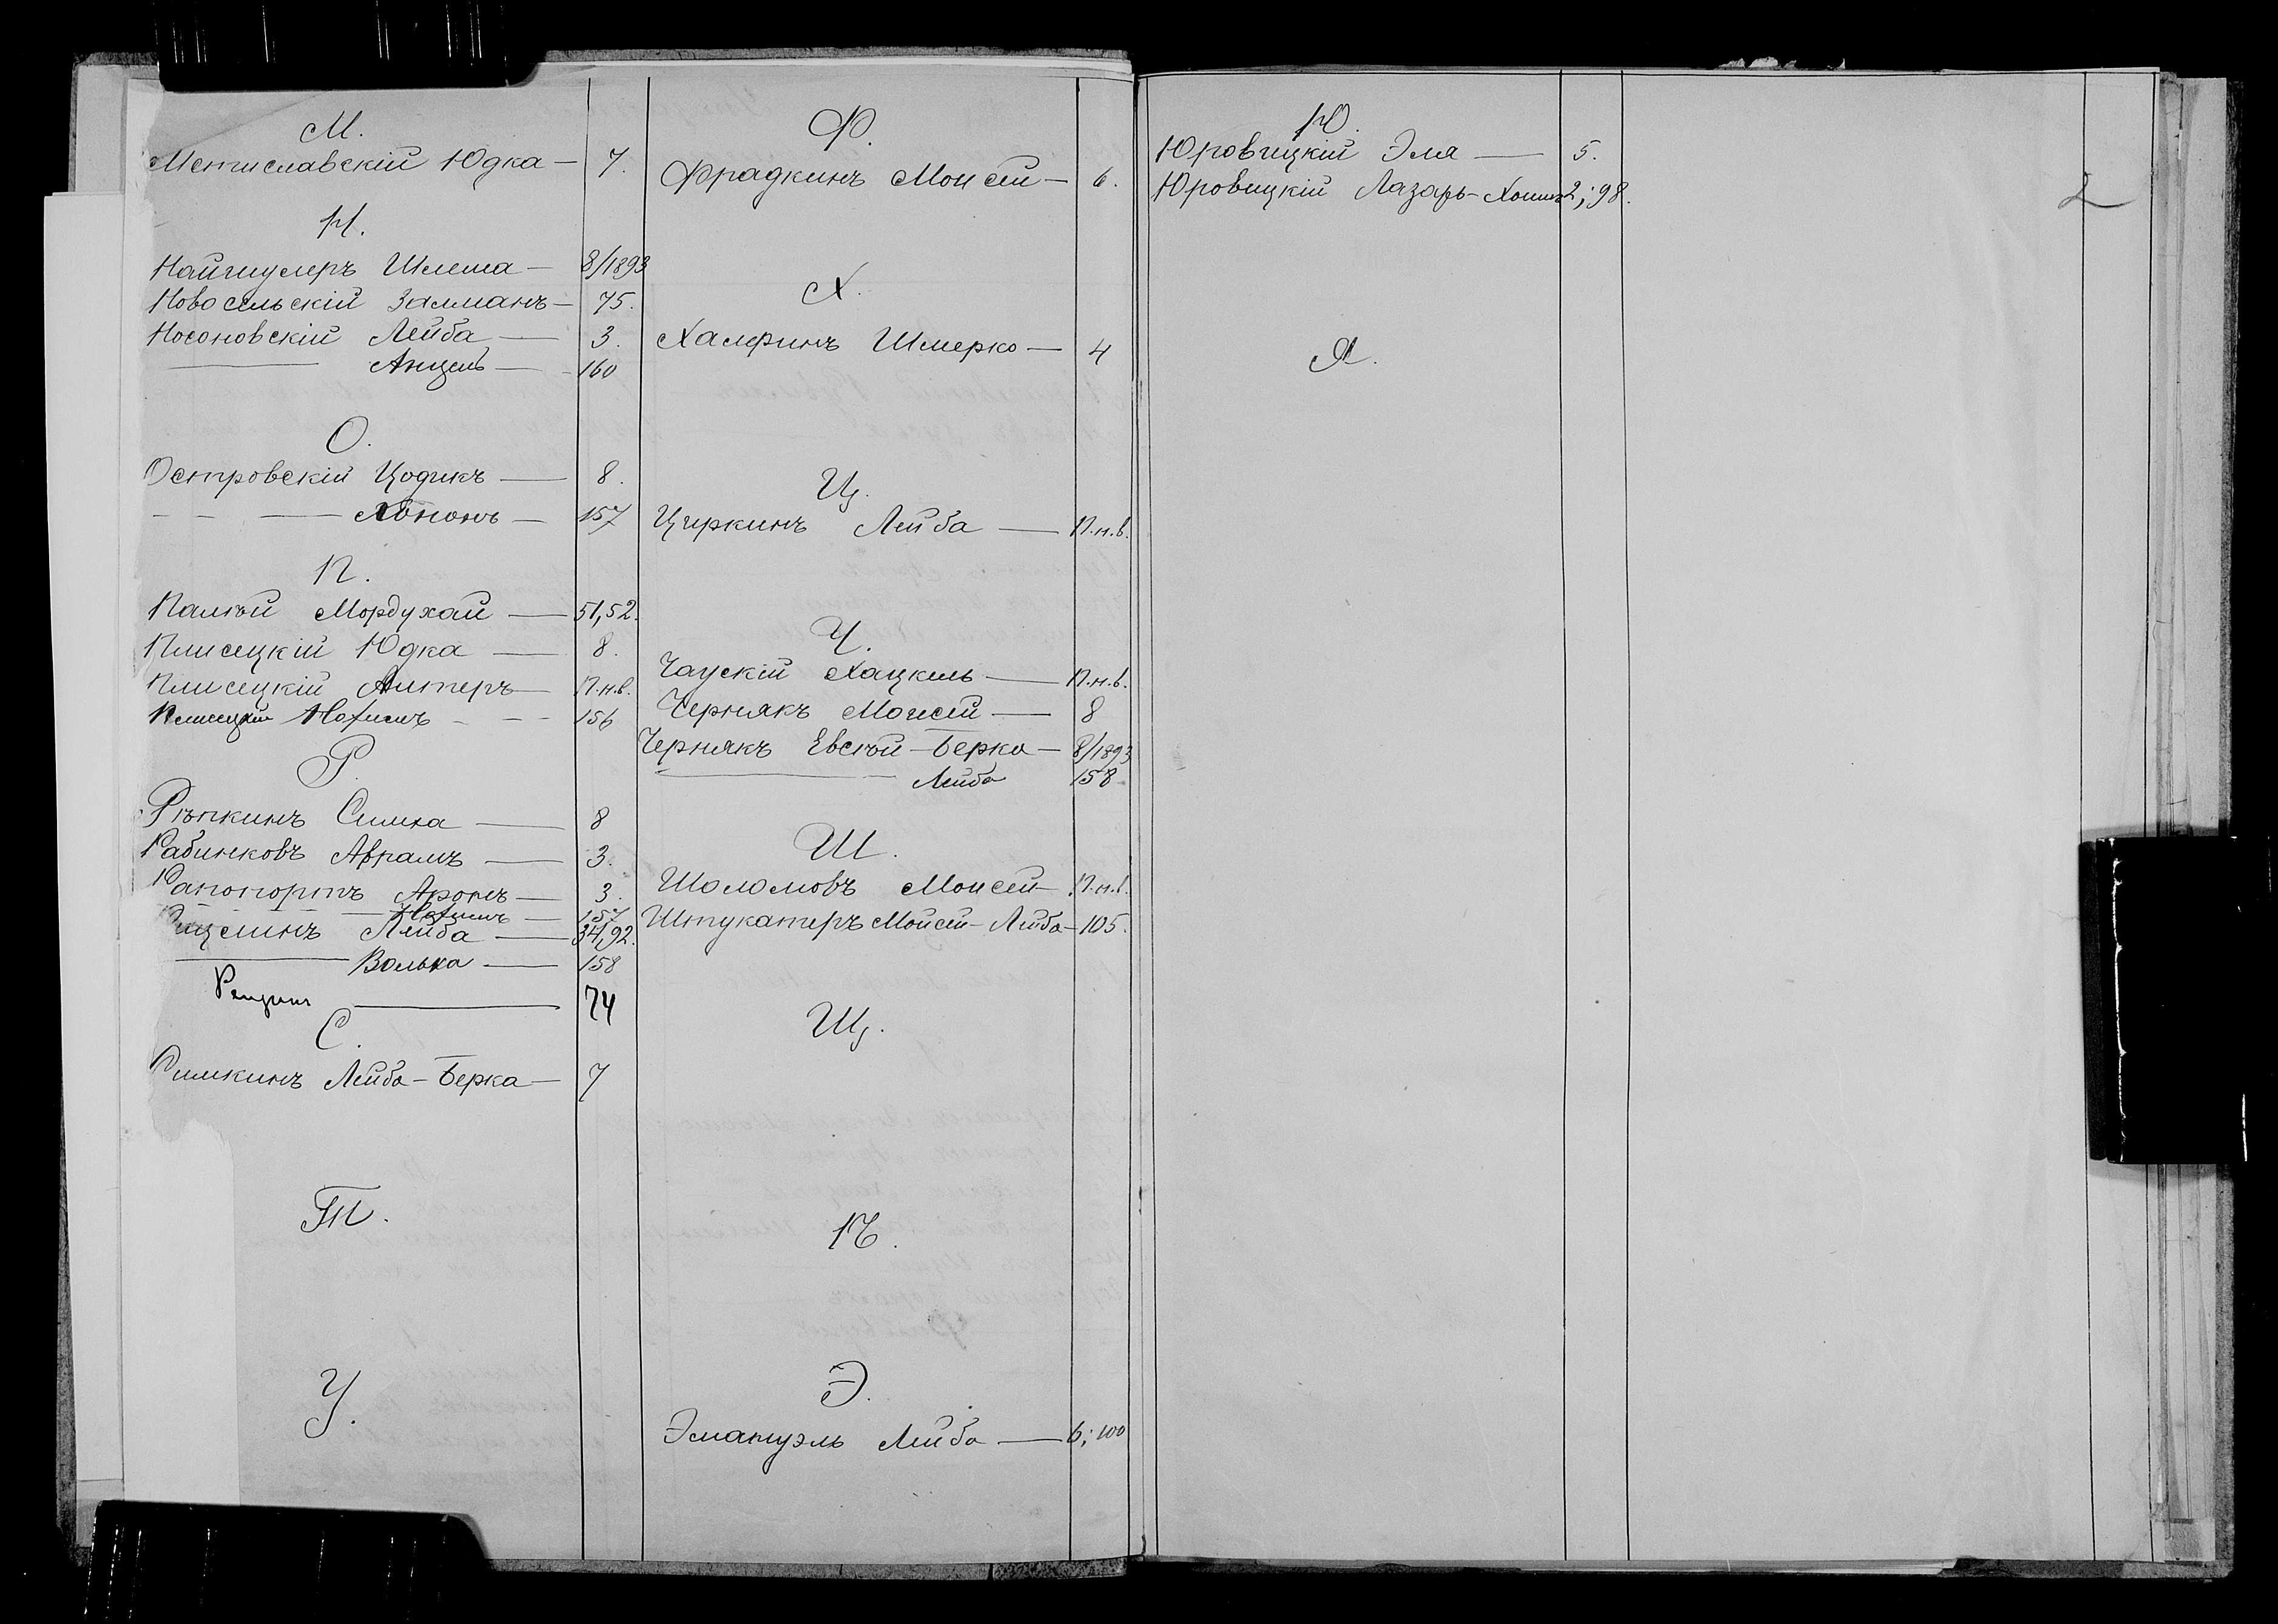 М.
Мстиславскій Юдка — 7.
Н.
Наймулеръ Шлема — 8/1893
Новосельскій Залманъ — 75.
Носоновскій Лейба — 3.
— Анцель — 160
О.
Островскій Цодикъ — 8.
— — — Хононъ — 157
П.
Палѣй Мордухай — 51,52.
Плисецкій Юдка — 8.
Плисецкій Алтеръ — П.н.в.
Плисецкій Нохимъ - - - 156
Р.
Рѣпкинъ Симха — 8
Рабинковъ Абрамъ — 3.
Рапопортъ Аронъ — 3.
— — — Нохимъ — 157
Лейба — 34,92.
— Волька — 158
— 74
С.
Римкинъ Лейба-Берка — 7
Т.
У.
Ф.
Фрадкинъ Моисей — 6.
Х.
Халфинъ Шмерко — 4
Ц.
Циркинъ Лейба — П.н.в.
Ч.
Чаускій Хацкель — П.н.в.
Чернякъ Моисей — 8
Чернякъ Евсѣй-Берка — 8/1893
— Лейба 158
Ш.
Шоломовъ Моисей — П.н.в.
Штукатеръ Моисей-Лейба — 105.
Щ.
Ѣ.
Э.
Эмануэль Лейба — 6; 100
Ю.
Юровицкій Эля — 5.
Юровицкій Лазарь- 2; 98.
Я.
2